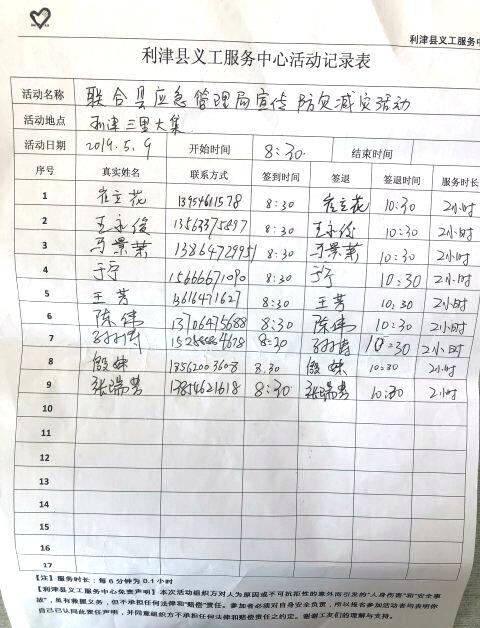 利津县义工服务中
利津县义工服务中心活动记录表
活动名称 联合县应急管理局宣传防灾减灾活动
活动地点 利津三里大集
活动日期 2019.5.9 开始时间 8:30 结束时间
序号 真实姓名 联系方式 签到时间 签退 签退时间 服务时长
1 崔立花 13954611578 8:30 崔立花 10:30 2小时
2 王永俊 13563375897 8:30 王永俊 10:30 2小时
3 景 13864729951 8:30 景 10:30 2小时
4 于宁 15666671090 8:30 于宁 10:30 2小时
5 王芳 13616471627 8:30 王芳 10:30 2小时
6 陈伟 13706475688 8:30 陈伟 10:30 2小时
7 孙 8:30 孙 10:30 2小时
8 殷妹 18562003608 8:30 殷妹 10:30 2小时
9 张瑞 13854621618 8:30 张瑞 10:30 2小时
10
11
12
13
14
15
16
17
【注】服务时长：每6分钟为0.1小时
【利津县义工服务中心免责声明】本次活动组织方对人为原因或不可抗拒性的意外而引发的“人身伤害”和“安全事
故”，虽有救援义务，但不承担任何法律和“赔偿”责任。参加者必须对自身安全负责，所以报名参加活动者均表明你
自己已认同此责任声明，并同意组织方不承担任何法律和赔偿责任之约定。谢谢工友们的理解与支持。